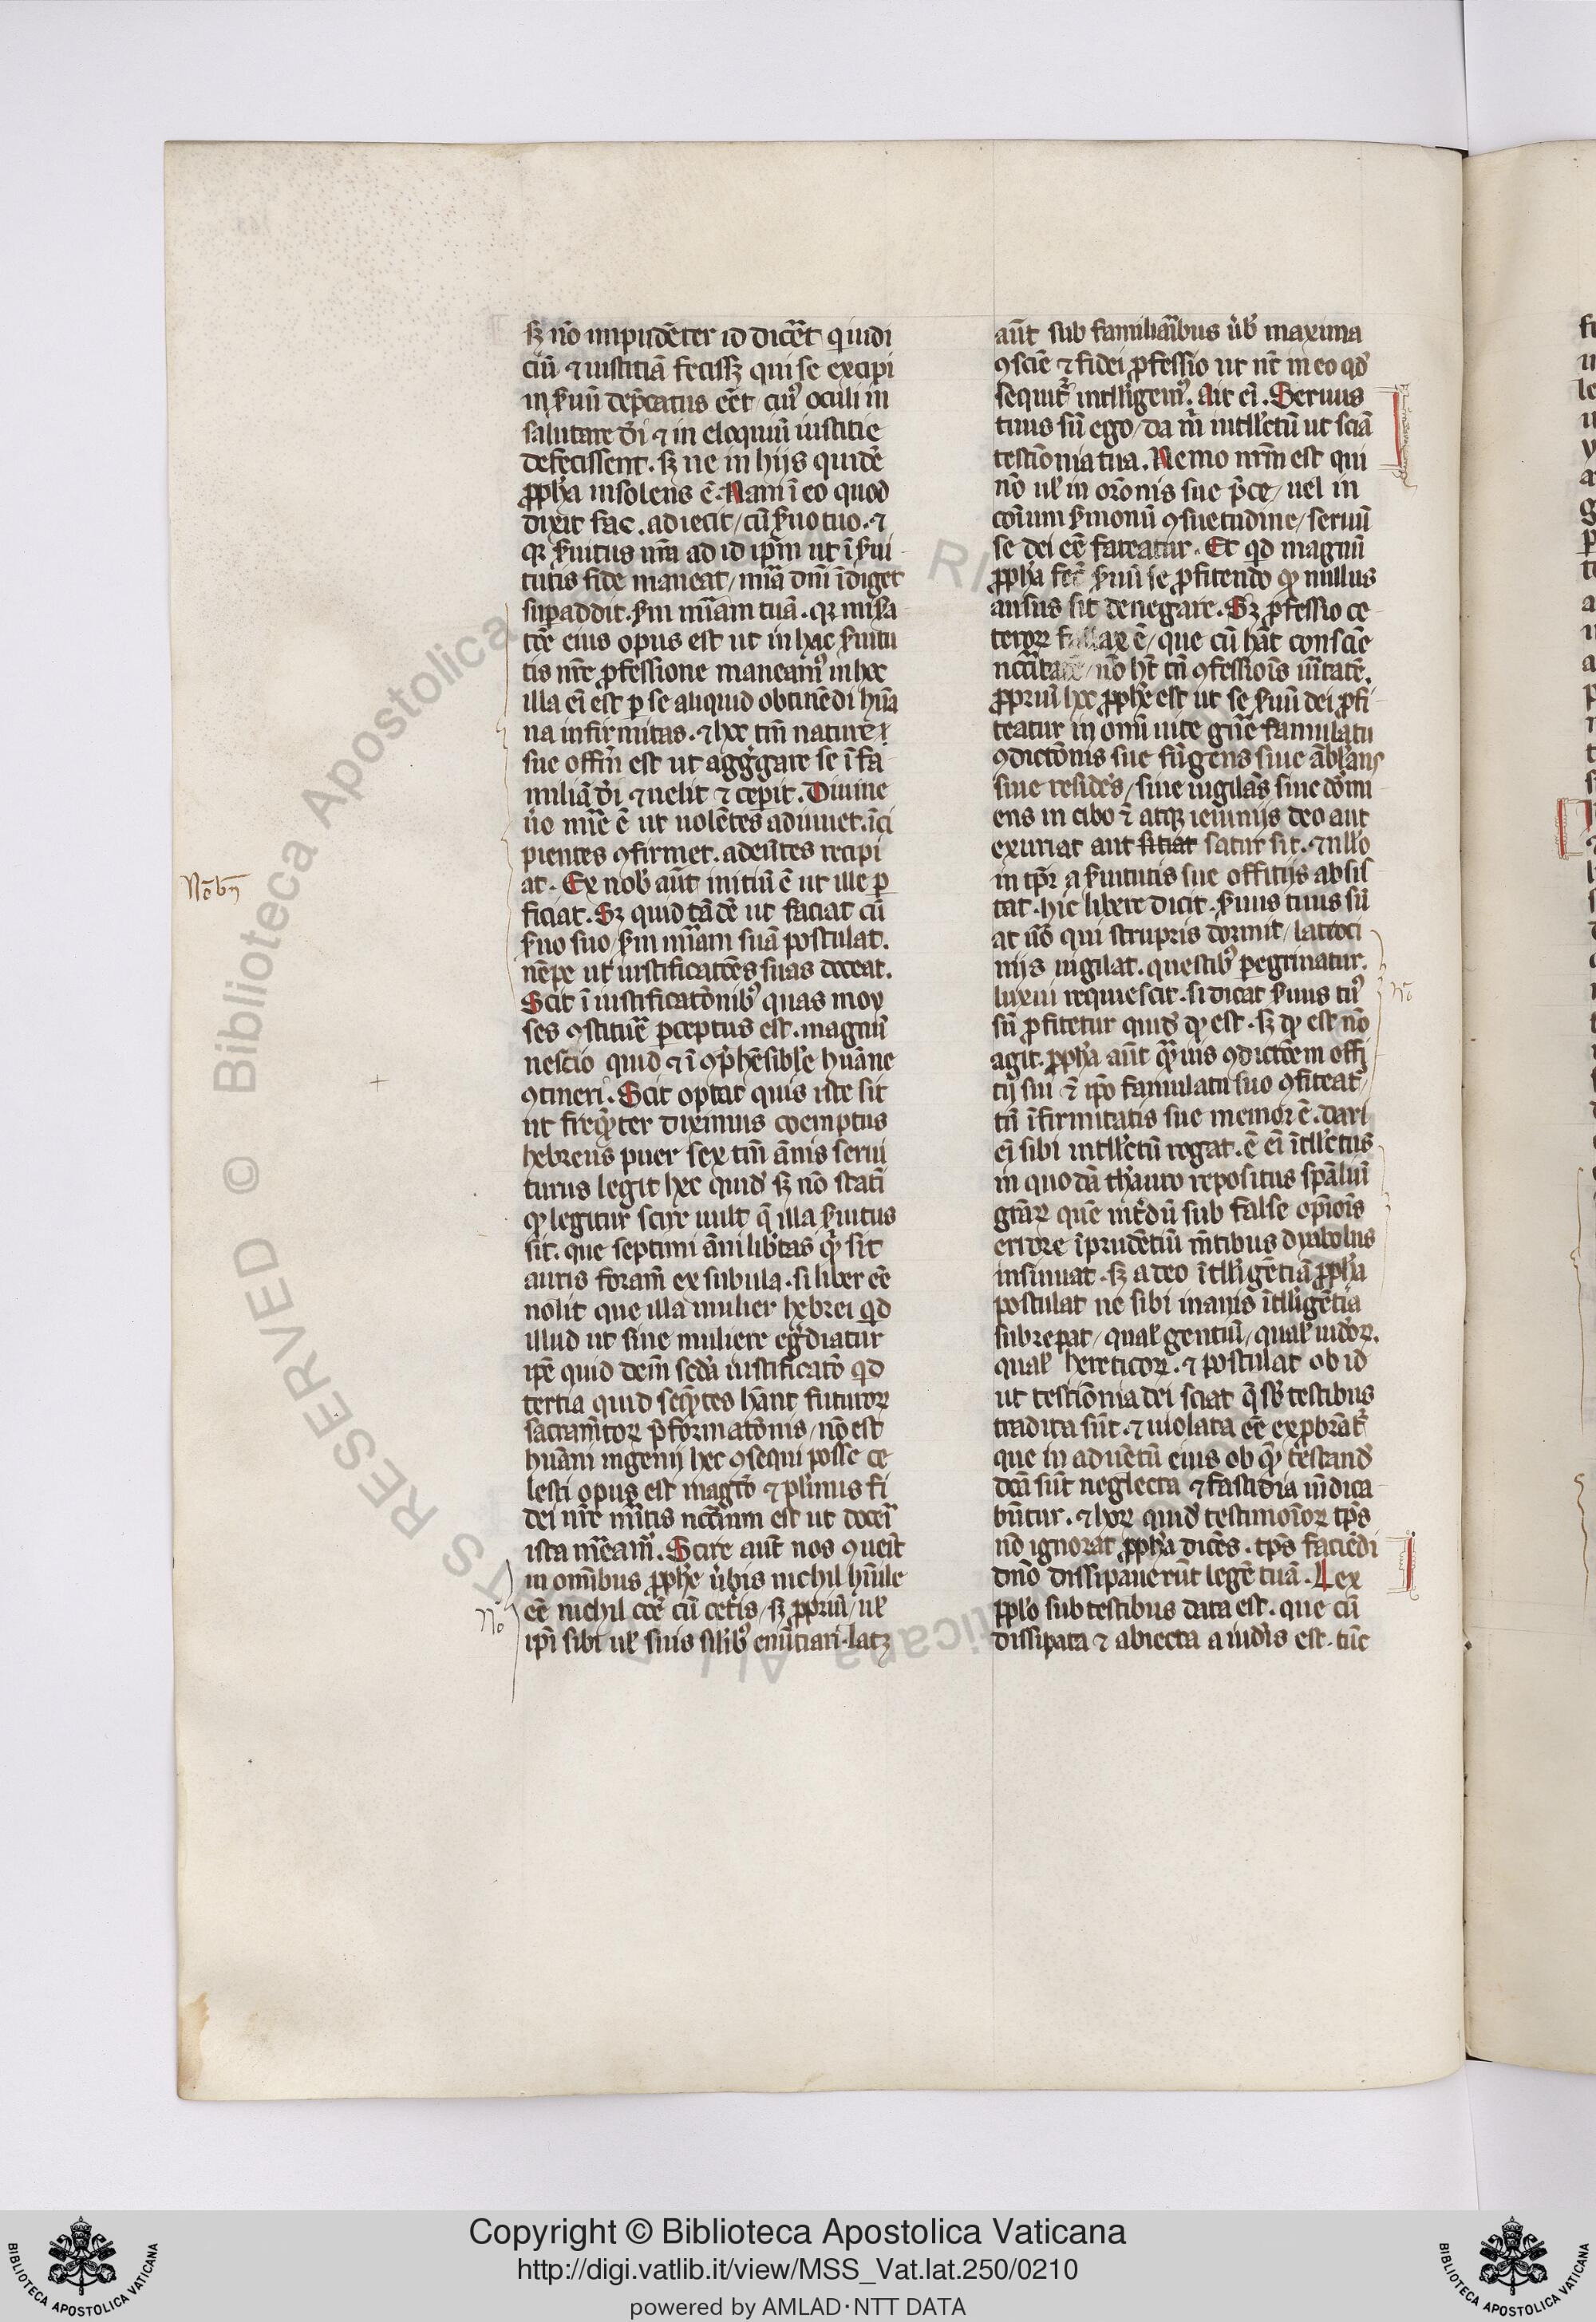 sꝫ nō impudēter id dicēt qui iudi
ciū ⁊ iustitiā fecissꝫ qui se excipi
in s̄uū dep̄catus eēt cuiꝰ oculi in
salutare dī ⁊ in eloquiū iustitie
defecissent. sꝫ ne in hijs quidē
ꝓph̄a insolens ē. Nam ī eo quod
dixit fac. adiecit / cū s̄uo tuo. ⁊
qꝛ s̄uitus nr̄a ad id ip̄m ut ī s̄ui
tutis fide maneat / mīa dn̄i īdiget
suꝑaddit. s̄m mīam tuā. qꝛ mis̄a
tōe eius opus est ut in hac s̄uitu
tis nr̄e ꝓfessione maneamꝰ in hec
illa eī est ꝑ se aliquid obtinēdi hūa
na infirmitas. ⁊ hec tm̄ nature
sue offm̄ est ut aggḡare se ī fa
miliā dī. ⁊ uelit ⁊ ceperit. Diuine
ūo mīe ē ut uolētes adiuuet. īci
pientes ꝯfirmet. adeūtes recipi
at. Ex nob̄ aūt initiū ē ut ille ꝑ
ficiat. Sꝫ quid tādē ut faciat cū
s̄uo suo / s̄m mīam suā postulat.
nēpe ut iustificatōes suas doceat.
Scit ī iustificatōnibꝰ quas moy
ses ꝯstitue p̄ceptus est. magnū
nescio quid ⁊ ī ꝯp̄hēsible huāne
ꝯtineri. Scit optat quis iste sit
ut freq̄ter diximus coemptus
hebreus puer sex tm̄ ānis serui
turus legit hec quid̄ sꝫ nō statī
qd̄ legitur scire uult q̄ illa s̄uitus
sit. que septimi āni lib̄tas q̄ sit
auris foram̄ ex subula. si liber eē
nolit que illa mulier hebrei qd
illud ut sine muliere egrediatur
ip̄e quid dem̄ scd̄a iustificatō qd
tertia quid seq̄tes hānt futuroꝝ
sacram̄toꝝ p̄formatōnis / nō est
huāni ingenij hec ꝯsequi posse ce
lesti opus est magr̄o ⁊ pl̄imus fi
dei nr̄e mētis nccārium est ut doceri
ista mēamꝰ. Scire aūt nos ꝯueīt
in om̄ibus ꝓph̄e ūbis nichil hūile
eē nichil cōe cū cetīs / sꝫ ꝓpriū / ul̄
ip̄i sibi ul̄ suis sil̄ibꝰ enūtiari. latꝫ
aūt sub familiarībus ūb̄ maxima
ꝯsciē ⁊ fidei ꝓfessio ut nt̄ in eo qd̄
sequit̄ intll̄igemꝰ. Ait eī. Seruus
tuus sū ego / da m̄ intll̄ctū ut sciā
testiōnia tua. Nemo nr̄m est qui
nō ul̄ in orōnis sue p̄ce / uel in
coīum s̄monū ꝯsuetudine / seruū
se dei eē fateatur. Et qd magnū
ꝓph̄a fec̄ s̄uū se ꝓfitendo qd̄ nullus
ausus sit denegare. Sꝫ ꝓfessio ce
teroꝝ fallax ē / que cū hāt consciē
nccītatē / nō ht̄ tn̄ ꝯfessiois ūitatē.
ꝓpriū hec ꝓph̄e est ut se s̄uū dei ꝓfi
teatur in om̄i uite gn̄e famulatu
ꝯdictōnis sue fūgens siue ābl̄ans
siue residēs / siue uigilās siue dormi
ens in cibo ⁊ atqꝫ ieiunijs deo aut
exuriat aut sitiat satur sit. ⁊ nll̄o
in tp̄r a s̄uitutis sue offitijs absis
tat. hic libere dicit. s̄uus tuus sū
at ūo qui strupris dormit / latroci
nijs uigilat. questibꝰ ꝑegrinatur.
luxui requiescit. si dicat s̄uus tuꝰ
sū ꝓfitetur quid̄ qd̄ est. sꝫ qd̄ est nō
agit. ꝓph̄a aūt q̄uis ꝯdictōem offi
tij sui ⁊ ip̄o famulatu suo ꝯfiteat̄
tn̄ īfirmitatis sue memor ē. dari
eī sibi intll̄ctū rogat. ē eī ītll̄ctus
in quodā thauro repositus spāliū
gr̄aꝝ quē int̄dū sub false opīois
errore īprudētiū mētibus dyabolus
insinuat. sꝫ a deo ītll̄igētiā ꝓph̄a
postulat ne sibi inanis ītll̄igētia
subrepat / qual̄ gentiū / qual̄ iudeoꝝ.
qual̄ hereticoꝝ. ⁊ postulat ob id
ut testiōnia dei sciat q̄ sb̄ testibus
tradita sūt. ⁊ uiolata eē exprobrāt̄
que in aduētū eius ob qd̄ testand̄
dca sūt neglecta ⁊ fastidia iudica
būtur. ⁊ hoꝝ quid̄ testimoīoꝝ tp̄s
nō ignorat ꝓph̄a dicēs. tp̄s faciēdi
dn̄o dissipauerūt legē tuā. Lex
ppl̄o sub testibus data est. que cū
dissipata ⁊ abiecta a iudīs est. tūc
Copyright © Biblioteca Apostolica Vaticana
http://digi.vatlib.it/view/MSS_Vat.lat.250/0210
powered by AMLAD·NTT DATA